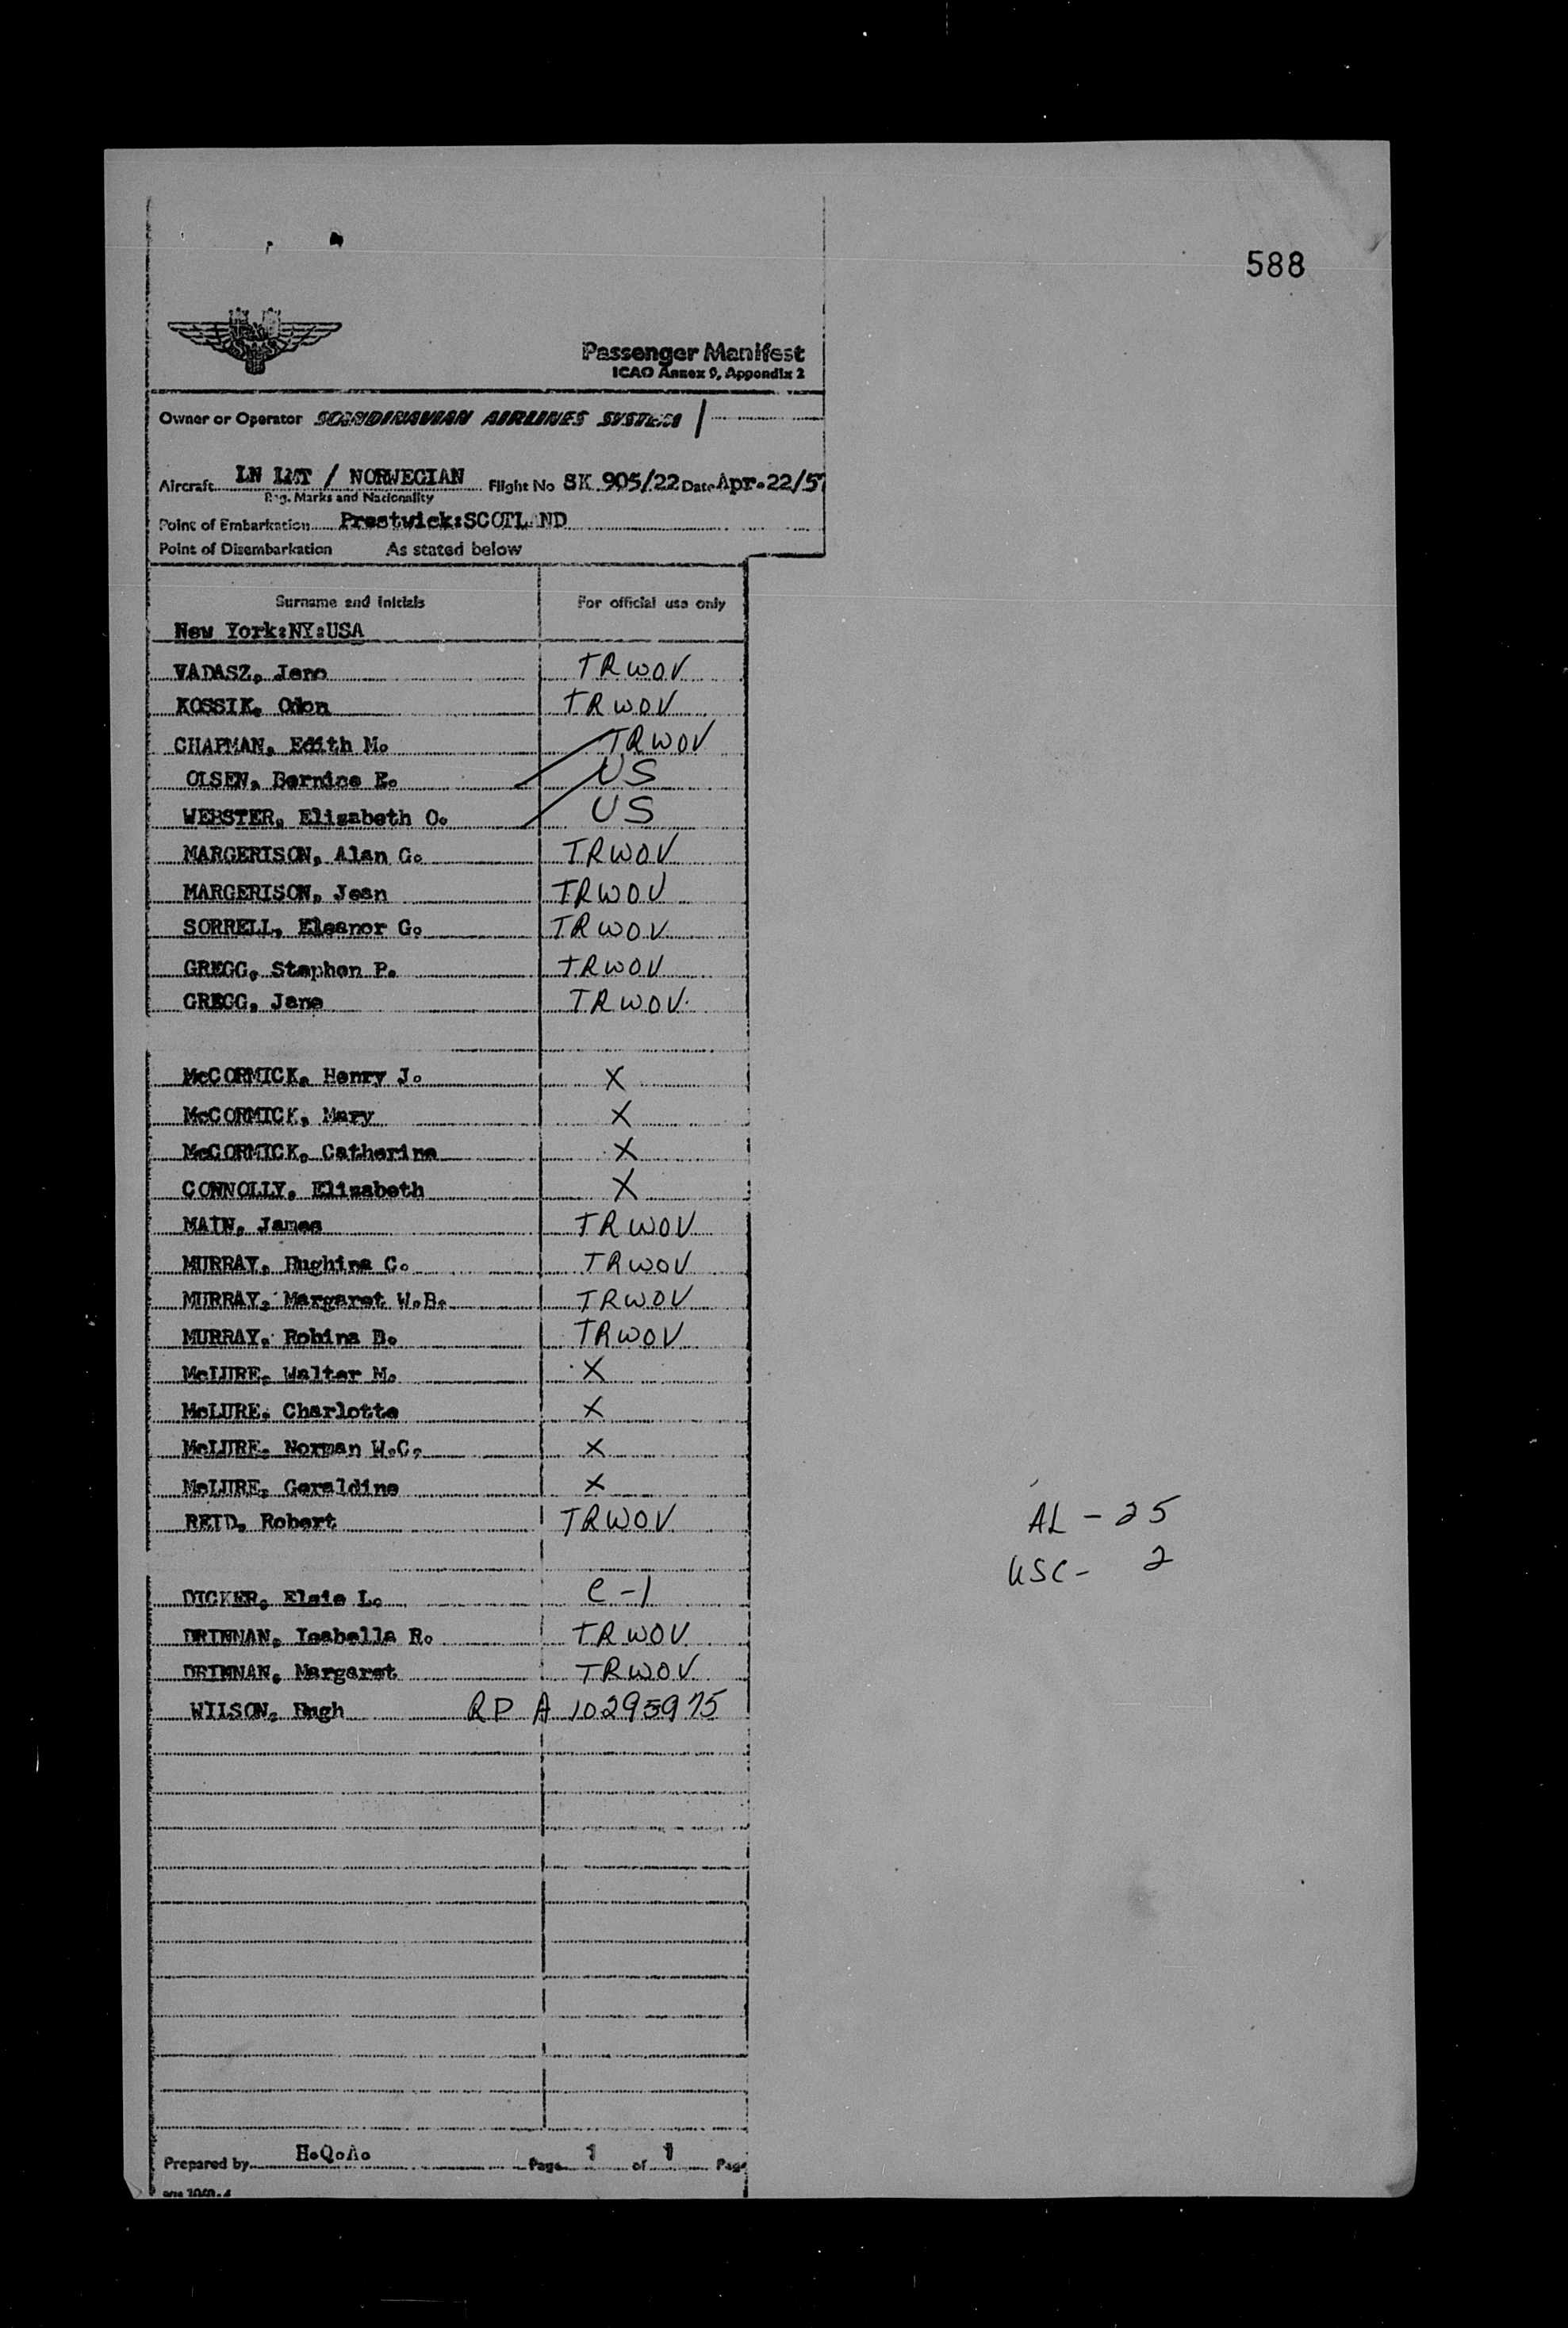 588
Passenger Manifest
ICAO Annex 9, Appendix 2
Owner or Operator SCANDINAVIAN AIRLINES SYSTEM
Aircraft LN LMT / NORWEGIAN Flight No SK 905/22 Date Apr.22/57
Reg. Marks and Nationality
Point of Embarkation Prestwick:SCOTLAND
Point of Disembarkation As stated below
Surname and initials For official use only
New York:NY:USA
VADASZ, Jeno TRWOV
KOSSIK, Odon TRWOV
CHAPMAN, Edith M. TRWOV
OLSEN, Bernice E. US
WEBSTER, Elizabeth O. US
MARGERISON, Alan G. TRWOV
MARGERISON, Jean TRWOV
SORRELL, Eleanor G. TRWOV
GREGG, Stephen P. TRWOV
GREGG, Jane TRWOV
McCORMICK, Henry J. X
McCORMICK, Mary X
McCORMICK, Catherine X
CONNOLLY, Elizabeth X
MAIN, James TRWOV
MURRAY, Hughina C. TRWOV
MURRAY, Margaret W.B. TRWOV
MURRAY, Robina B. TRWOV
McLURE, Walter M. X
McLURE, Charlotte X
McLURE, Norman W.C. X
McLURE, Geraldine X
REID, Robert TRWOV
AL - 25
USC - 2
DICKER, Elsie L. C-1
DRENNAN, Isabella R. TRWOV
DRENNAN, Margaret TRWOV
WILSON, Hugh RP A 10295975
Prepared by H.Q.A. Page 1 of 1 Page